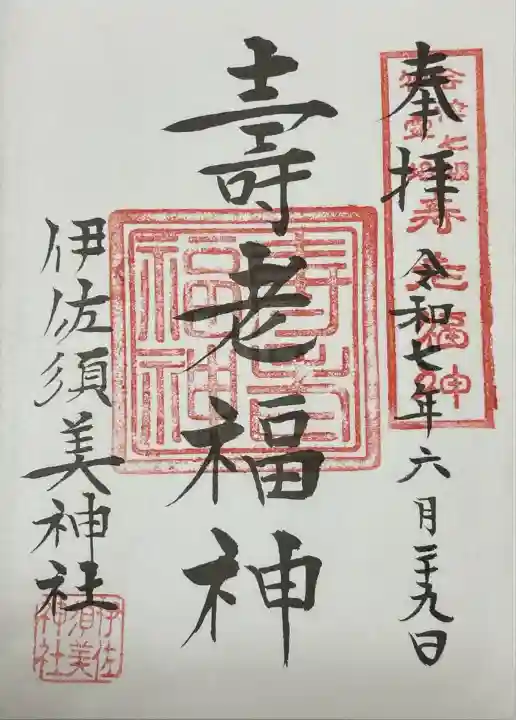 奉拝 令和七年六月二十九日
壽老福神
伊佐須美神社
会津七福神
寿老福神
寿老福神
伊佐須美神社